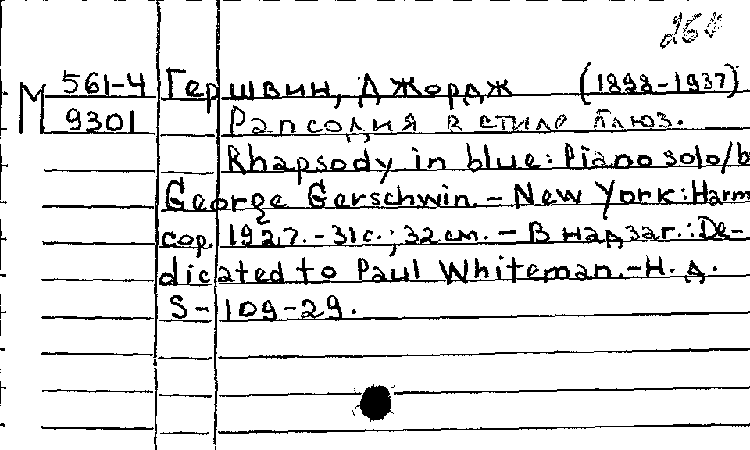 260
М 561-4 Гершвин, Джордж (1898-1937)
9301 Рапсодия в стиле блюз.
Rhapsody in blue: Piano solo/b
George Gerschwin. - New York: Harm
cop. 1927. - 31 с.; 32 см. - В надзаг.: De-
dicated to Paul Whiteman. - Н. д.
S - 109-29.